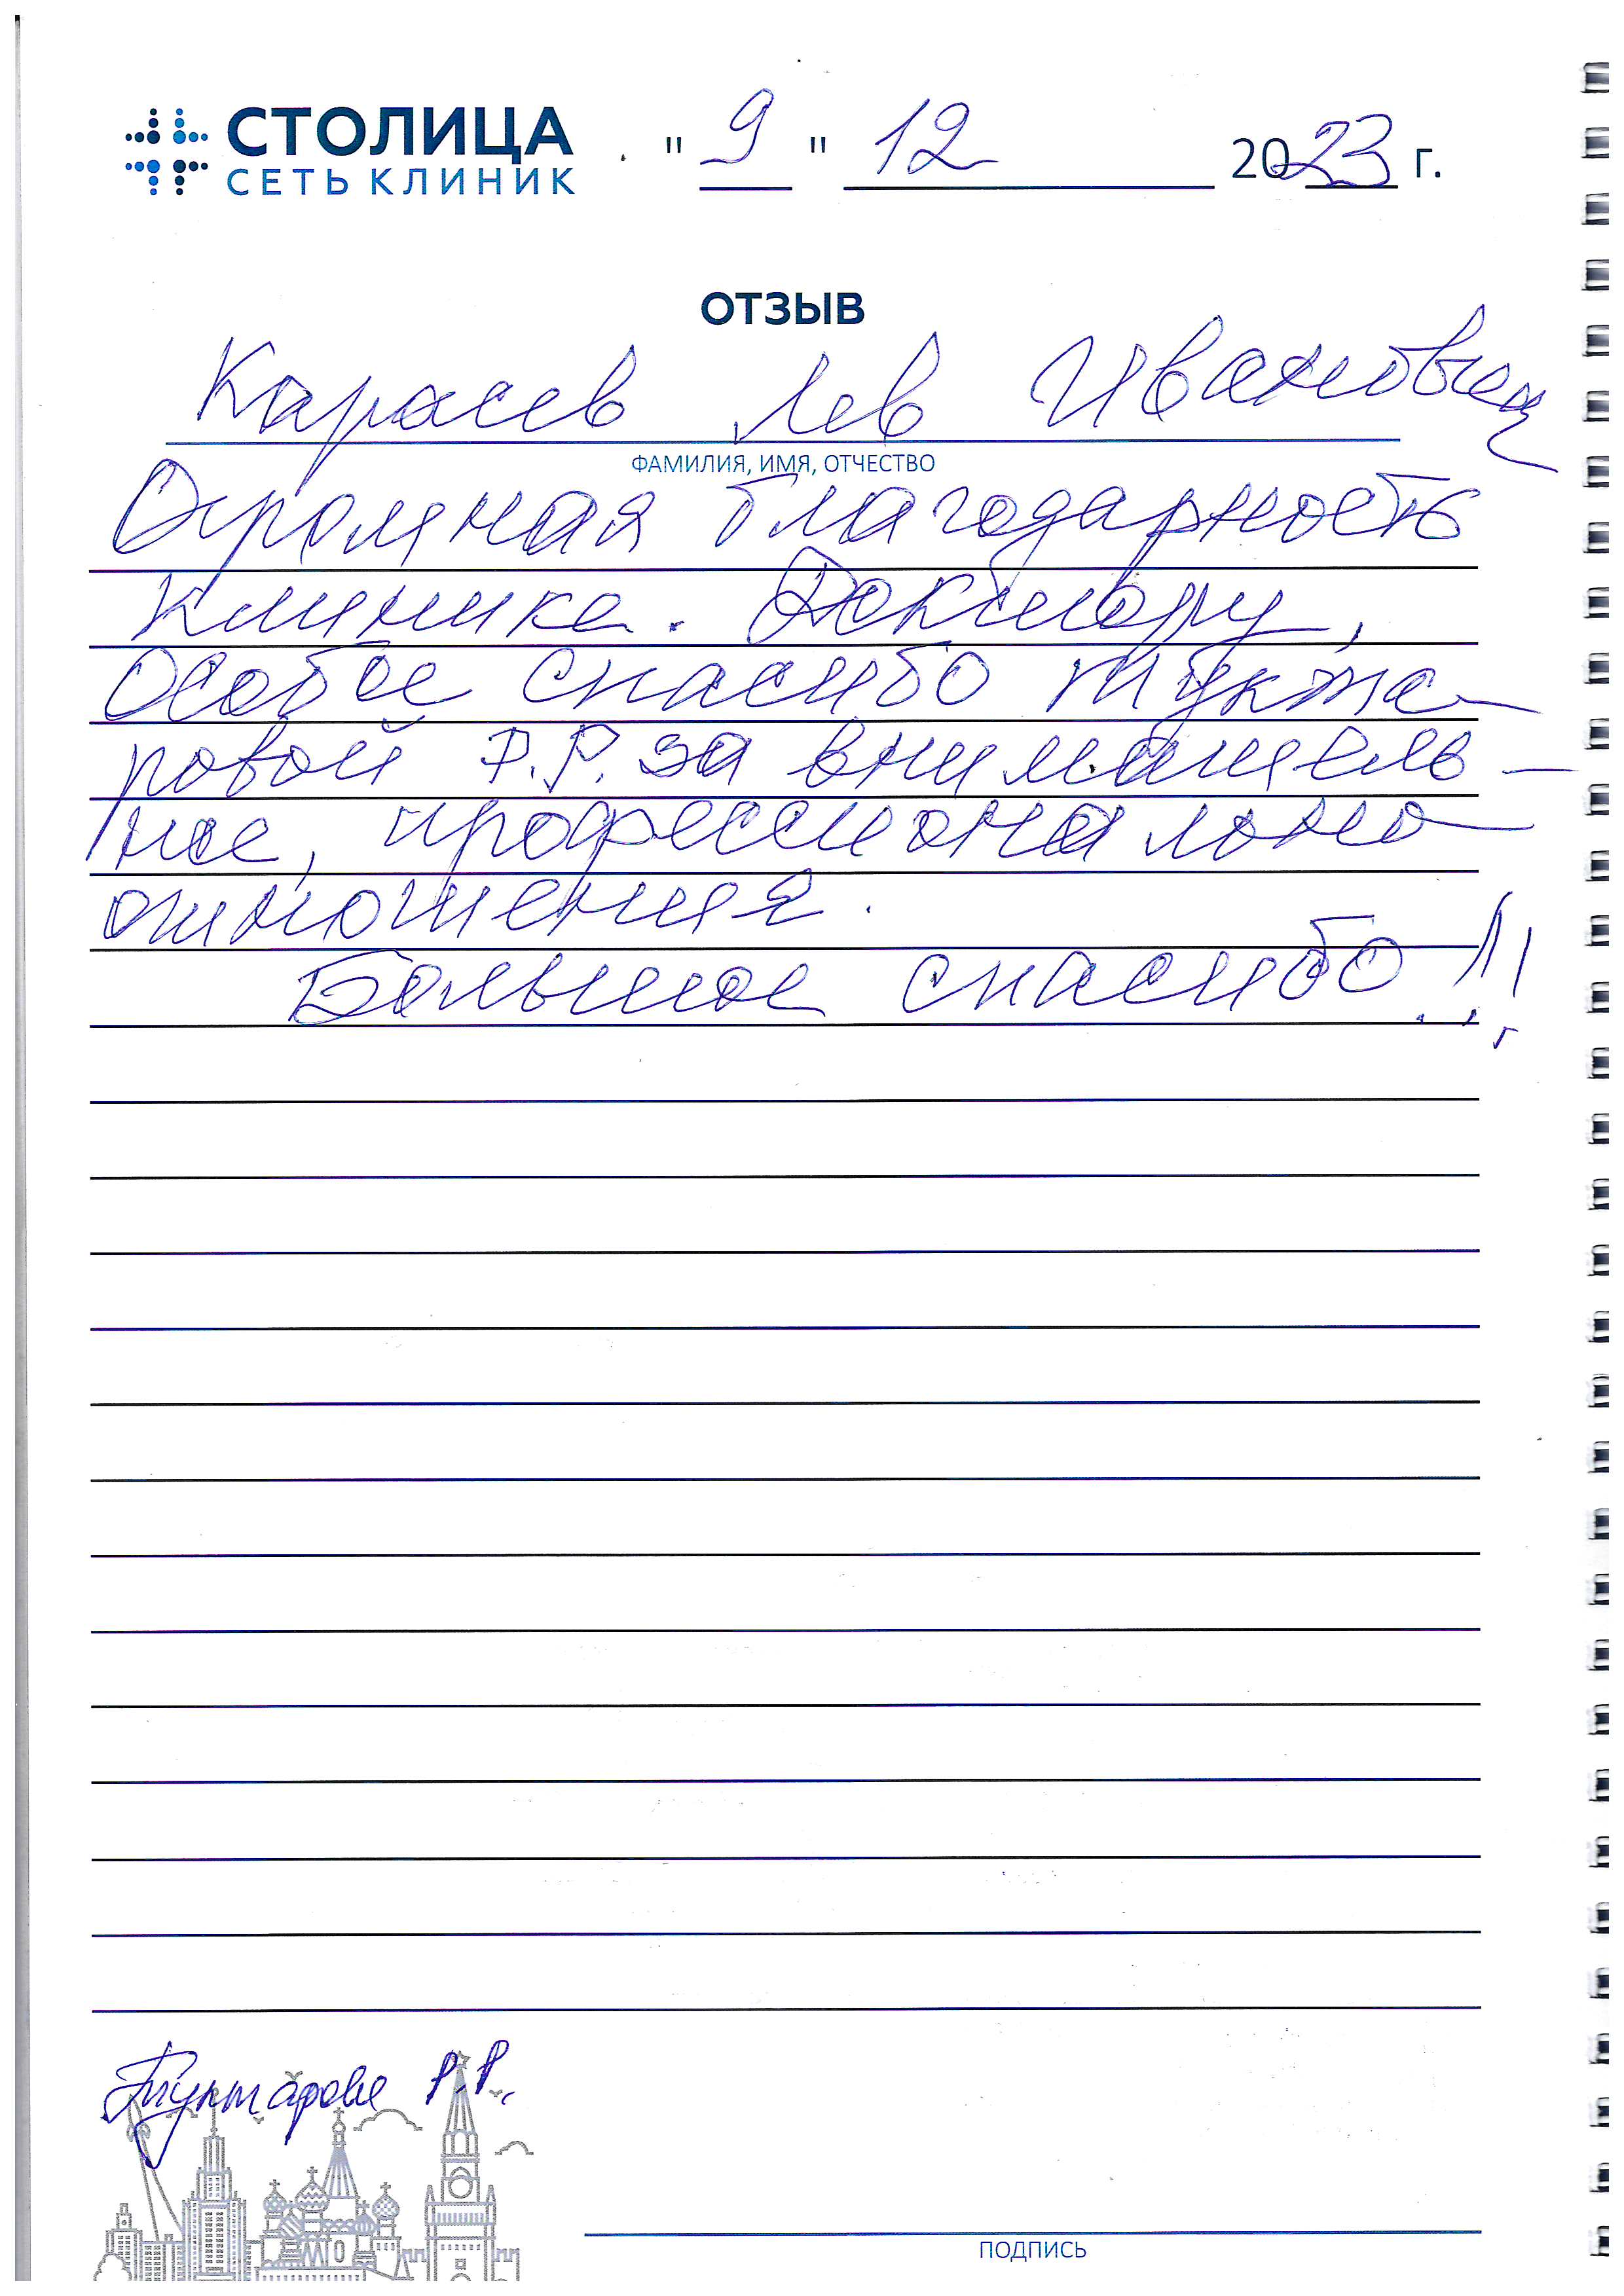 СТОЛИЦА
СЕТЬ КЛИНИК
" 9 " 12 2023 г.
ОТЗЫВ
Карасев Лев Иванович
ФАМИЛИЯ, ИМЯ, ОТЧЕСТВО
Огромная благодарность
клинике. Доктору,
особое спасибо Тукта-
ровой Р.Р. за вниматель-
ное, профессионально
отношения.
Большое спасибо!!!
Туктарова Р.Р.
ПОДПИСЬ